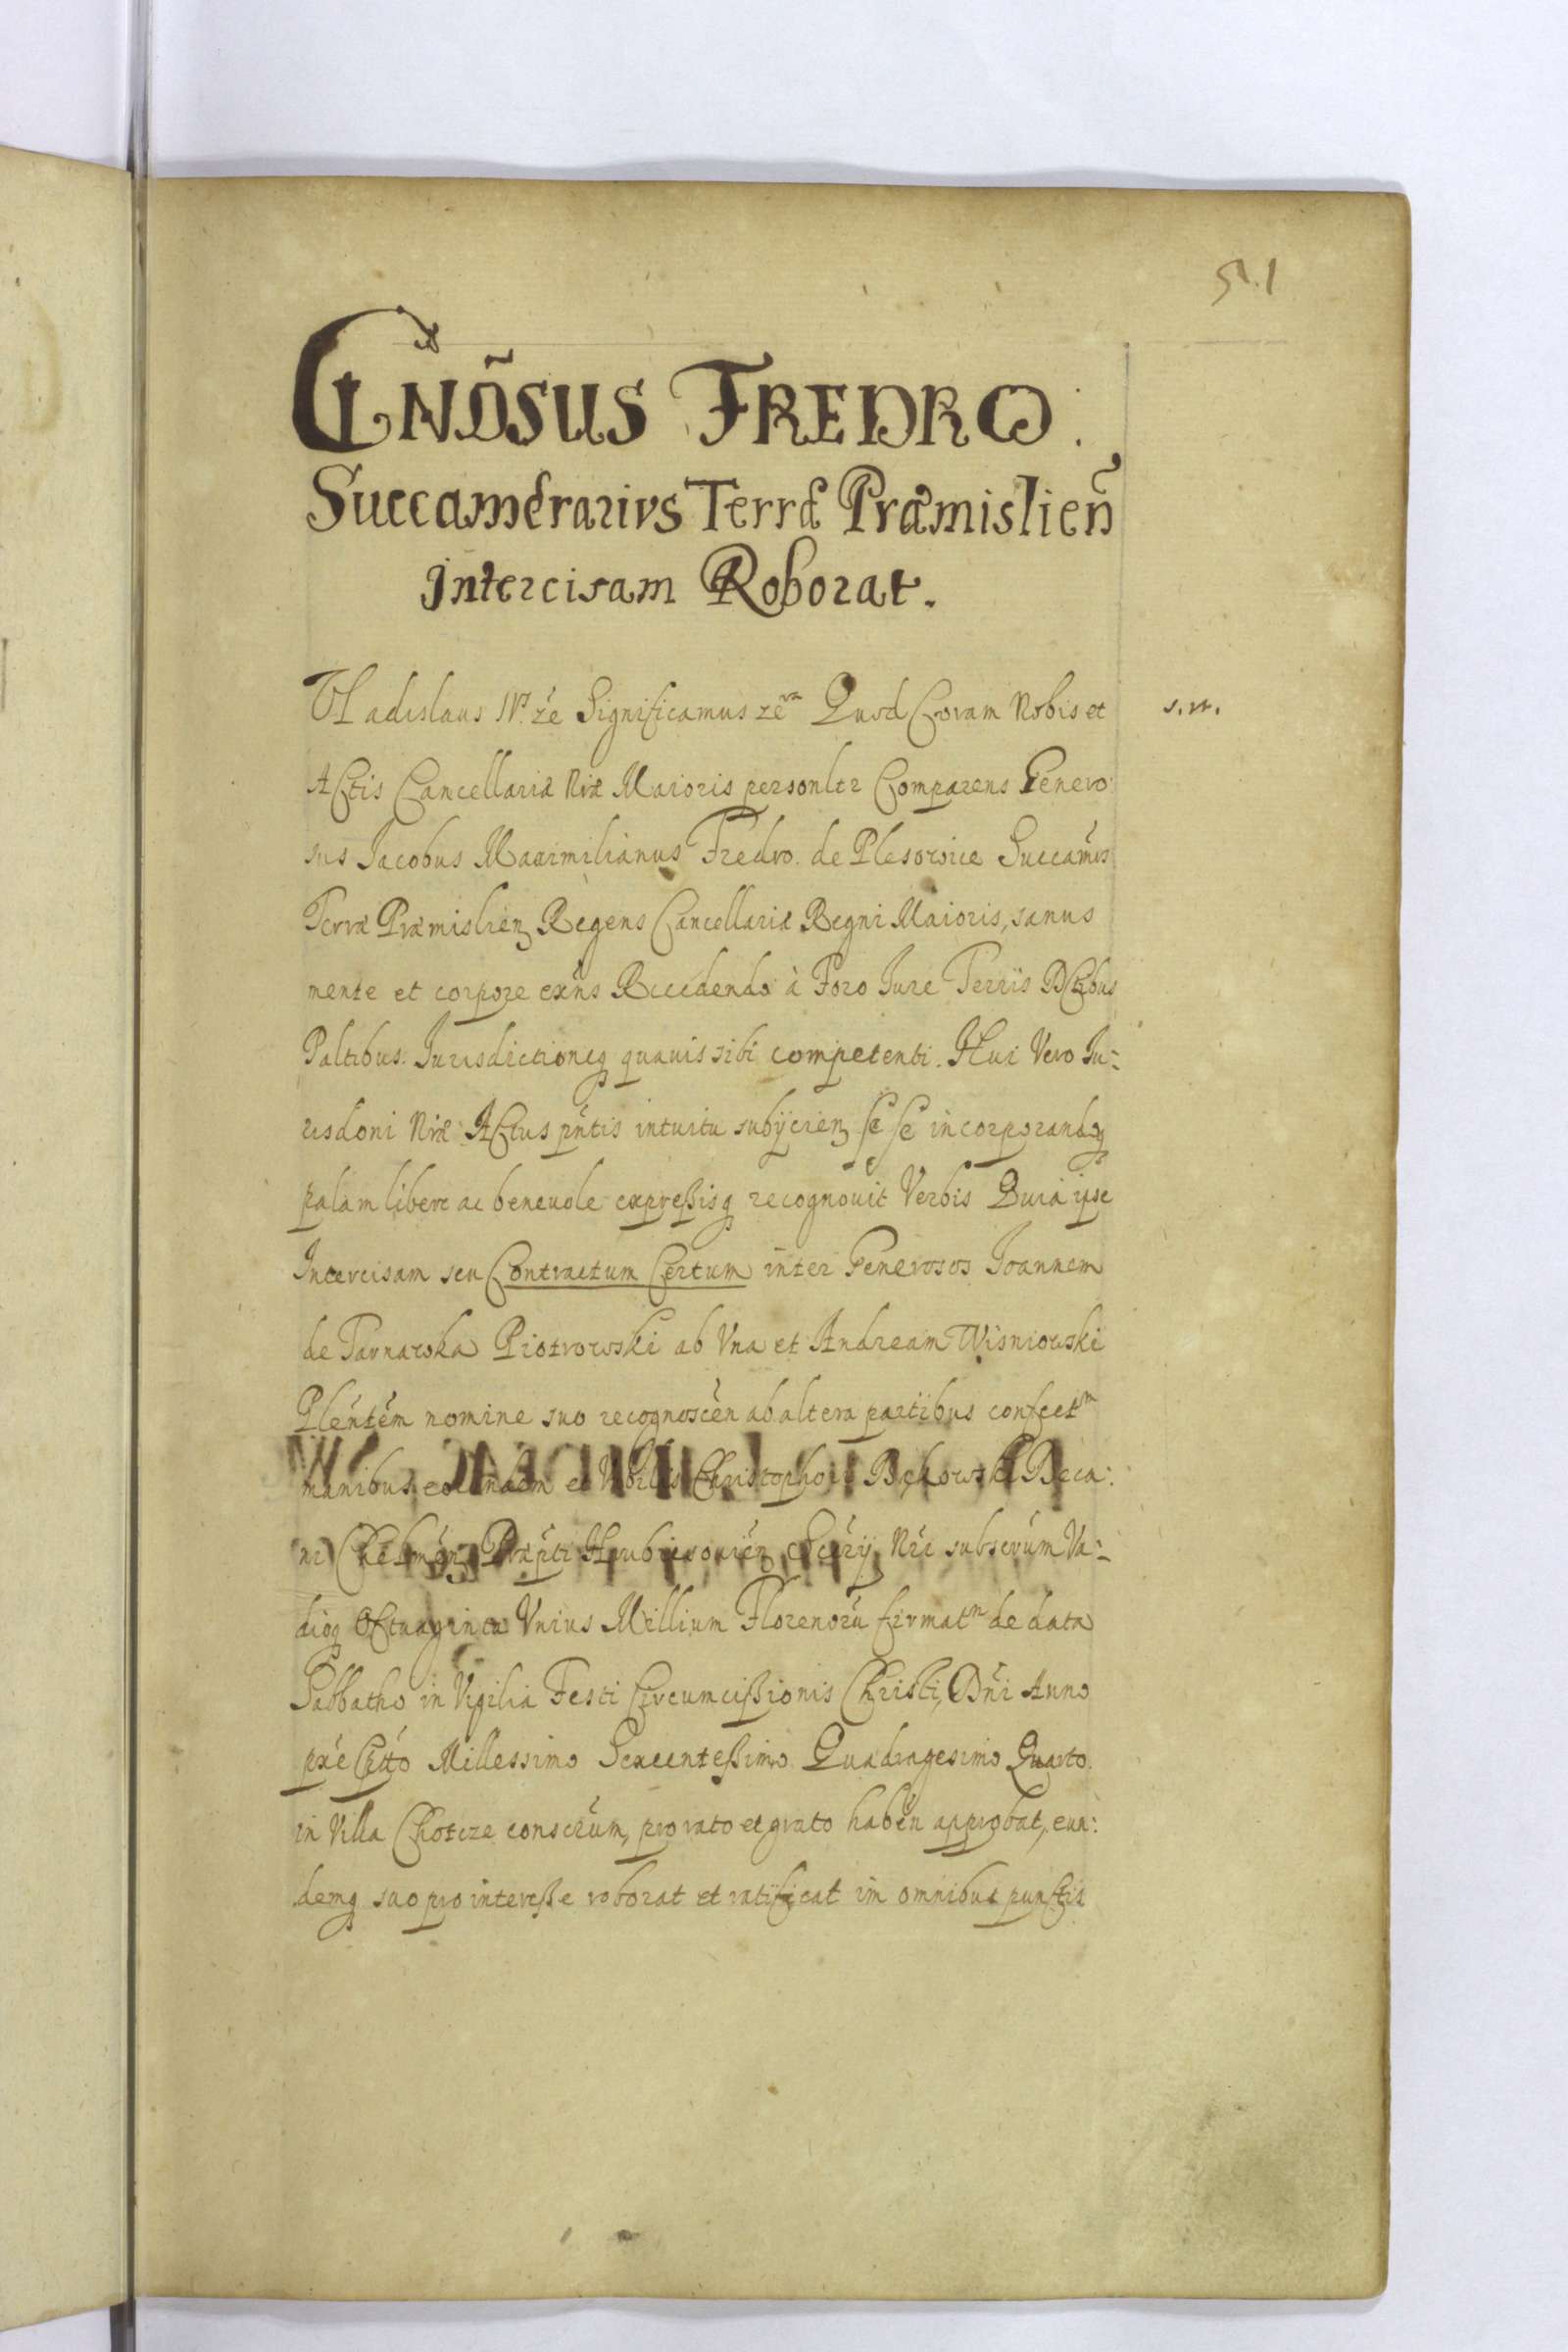 51
GNõSUS FREDRO.
Succamerarius Terræ Præmislieñ
Intercisam Roborat.
Vladislaus IV. ře Significamus ře Quod Coram Nobis et
s. n.
Actis Cancellariæ Nræ Maioris personltr Comparens Genero:
sus Jacobus Maximilianus Fredro de Plesowice Succamrs
Terræ Præmislien Regens Cancellariæ Regni Maioris, sanus
mente et corpore exñs Recedendo à Foro Jure Terris Dctbus
Paltibus Jurisdictioneq quavis sibi competenti. Hui Vero Ju:
risdoni Nræ Actus pñtis intuitu subijcien se se incorporandoq
palam libere ac benevole expressisq recognovit Verbis Quia ipse
Intercisam seu Contractum Certum inter Generosos Joannem
de Tarnawka Piotrowski ab Vna et Andream Wisniowski
Plentem nomine suo recognoscen ab altera partibus confect m
manibus eorundem et Nobilis Christophori Bękowski Deca:
ni Chelmen Præpti Hrubieszovien Secrij Nri subscrum Va:
dioq Octuaginta Vnius Millium Florenorũ firmat m de data
Sabbatho in Vigilia Festi Circumcissionis Christi, Dñi Anno
præ Millessimo Sexcentessimo Quadragesimo Quarto
in Villa Chotcze conscrũm, pro rato et grato haben approbat, eun:
demq suo pro interesse roborat et ratificat im omnibus punctis